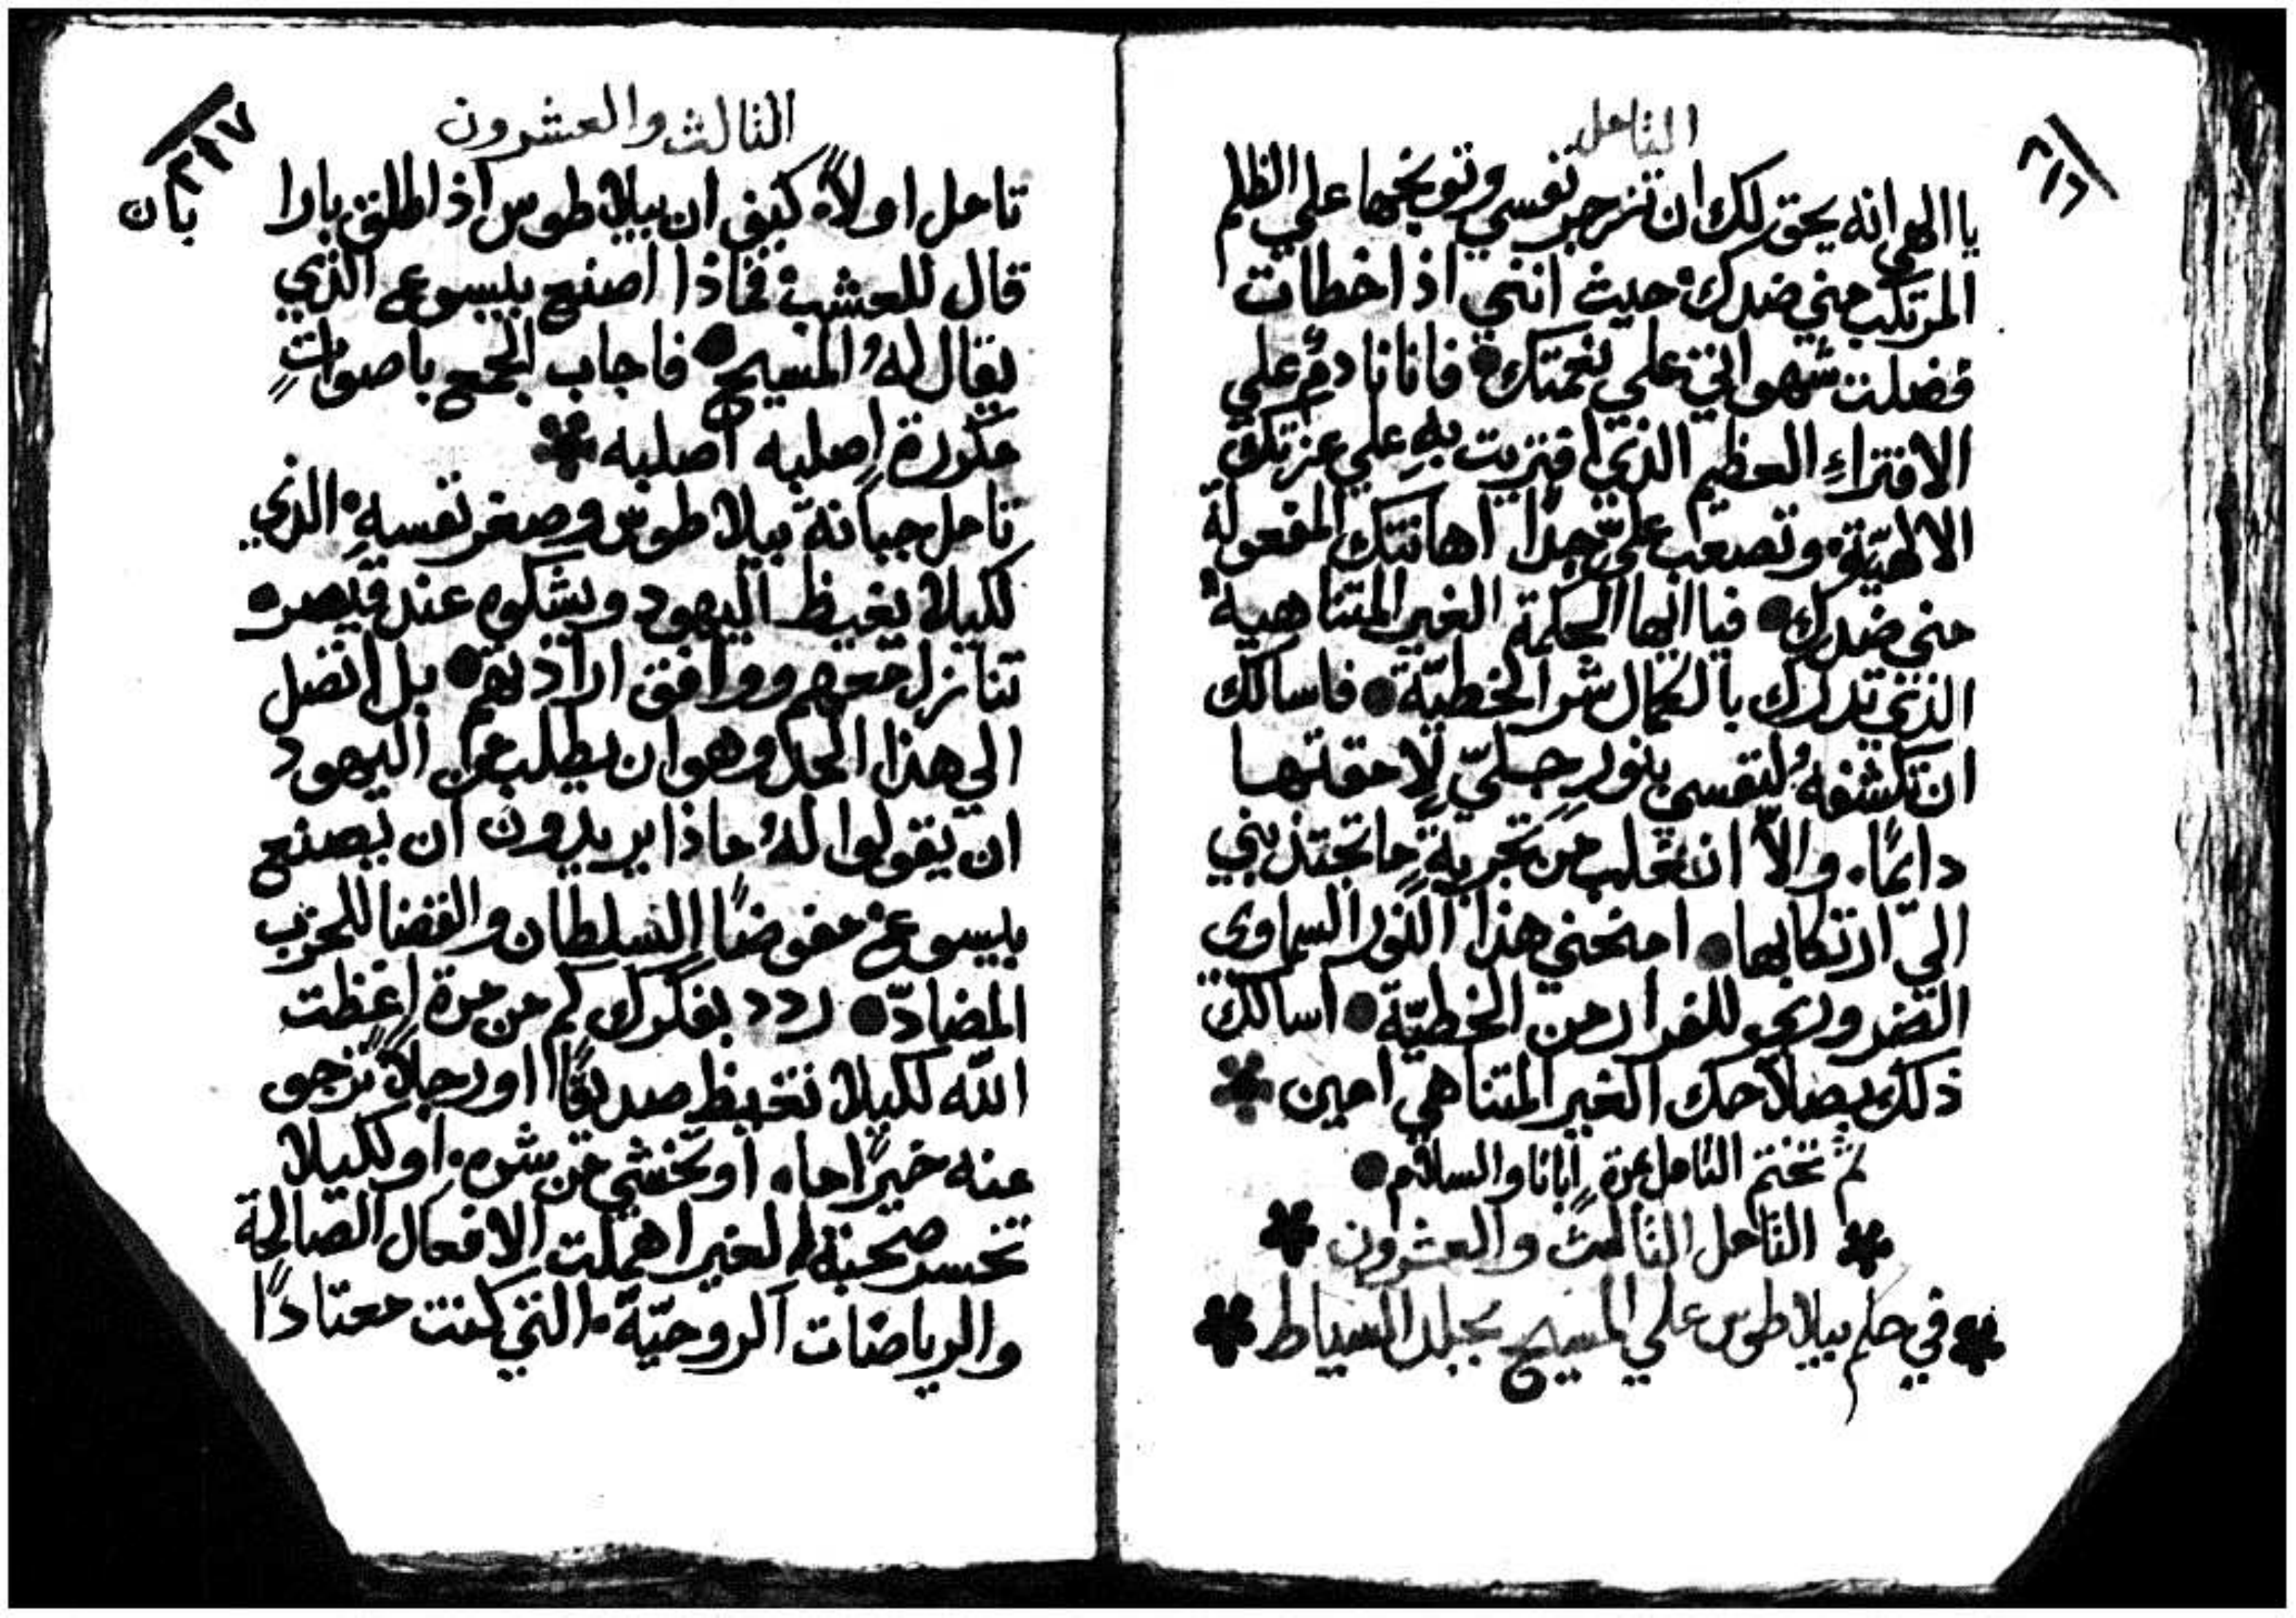 التامل
يا الهي انه يحق لك ان تزجر نفسي وتوبخها علي الظلم
المرتكب مني ضدك، حيث انني اذ اخطات
فضلت شهواتي علي نعمتك، فانا نادم علي
الافتراءِ العظيم الذي افتريت بهِ علي عزتك
الالهيّة، وتصعب عليّ جدًا اهانتك المفعولة
مني ضدك● فيا ايها الحكمة الغير المتناهية
الذي تدرك بالكمال شر الخطيّة● فاسالك
ان تكشفهُ لنفسي بنورٍ جليّ لامقتها
دايمًا، والاّ انغلب من تجربةٍ ما تجتذبني
اليّ ارتكابها● امنحني هذا النور السماوي
الضروري نحو للفرار من الخطيّة● اسالك
ذلك بصلاحك الغير المتناهي امين
ثم تختم التامل بمرة ابانا والسلام●
التامل الثالث والعشرون
في حكم بيلاطوس علي المسيح بجلد السياط
الثالث والعشرون
٢١٧
تامل اولاً، كيف ان بيلاطوس اذ اطلق بارا
بان
قال للعشب فماذا اصنع بيسوع الذي
يقال لهُ المسيح● فاجاب الجمع باصواتٍ
مكررة اصلبه اصلبه
تامل جبانة بيلاطوس وصغر نفسهِ، الذي
لكيلا يغيظ اليهود ويشكوه عند قيصر،
تنازل معهم ووافق ارادتهم● بل اتصل
الي هذا الحد وهو ان يطلب من اليهود
ان يقولوا لهُ ماذا يريدون ان يصنع
بيسوع، مفوضًا السلطان والقضا للحزب
المضادّ● ردد بفكرك كم من مرة اغظت
اللّه لكيلا تغيظ صديقًا او رجلاً ترجو
عنه خيرًا ما، او تخشي من شره، او لكيلا
تخسر محبة الغير اهملت الافعال الصالحة
والرياضات الروحيّة، التي كنت معتادًا